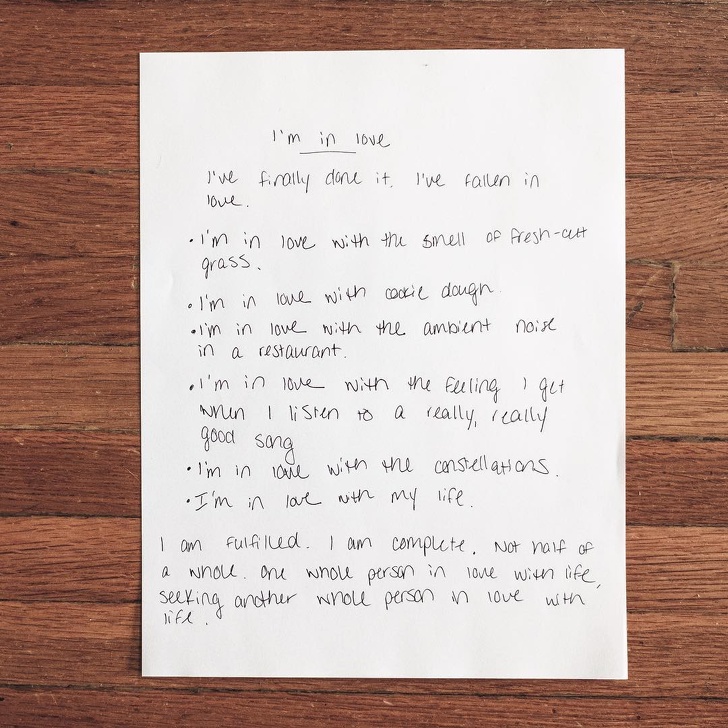 I'm in love
I've finally done it. I've fallen in
love.
• I'm in love with the smell of fresh-cut
grass.
• I'm in love with cookie dough.
• I'm in love with the ambient noise
in a restaurant.
• I'm in love with the feeling I get
when I listen to a really, really
good song
• I'm in love with the constellations.
• I'm in love with my life.
I am fulfilled. I am complete. Not half of
a whole. One whole person in love with life,
seeking another whole person in love with
life.